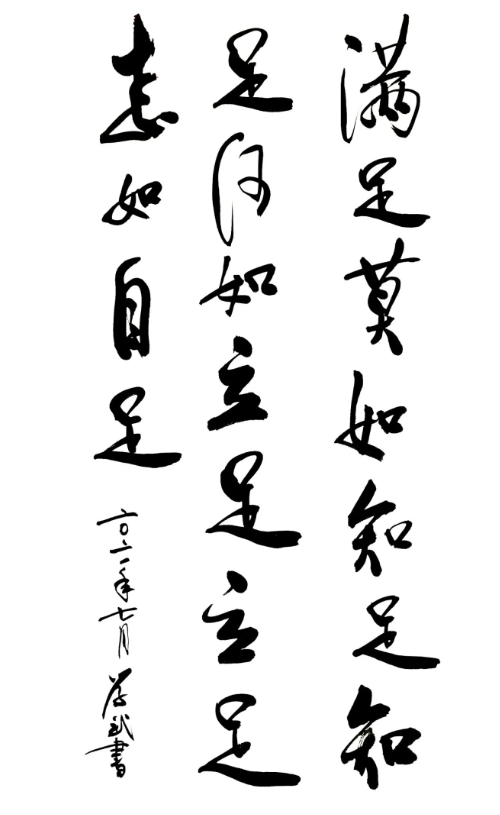 满足莫如知足知
足何如立足立足
如自足
二〇二一年七月 学武書